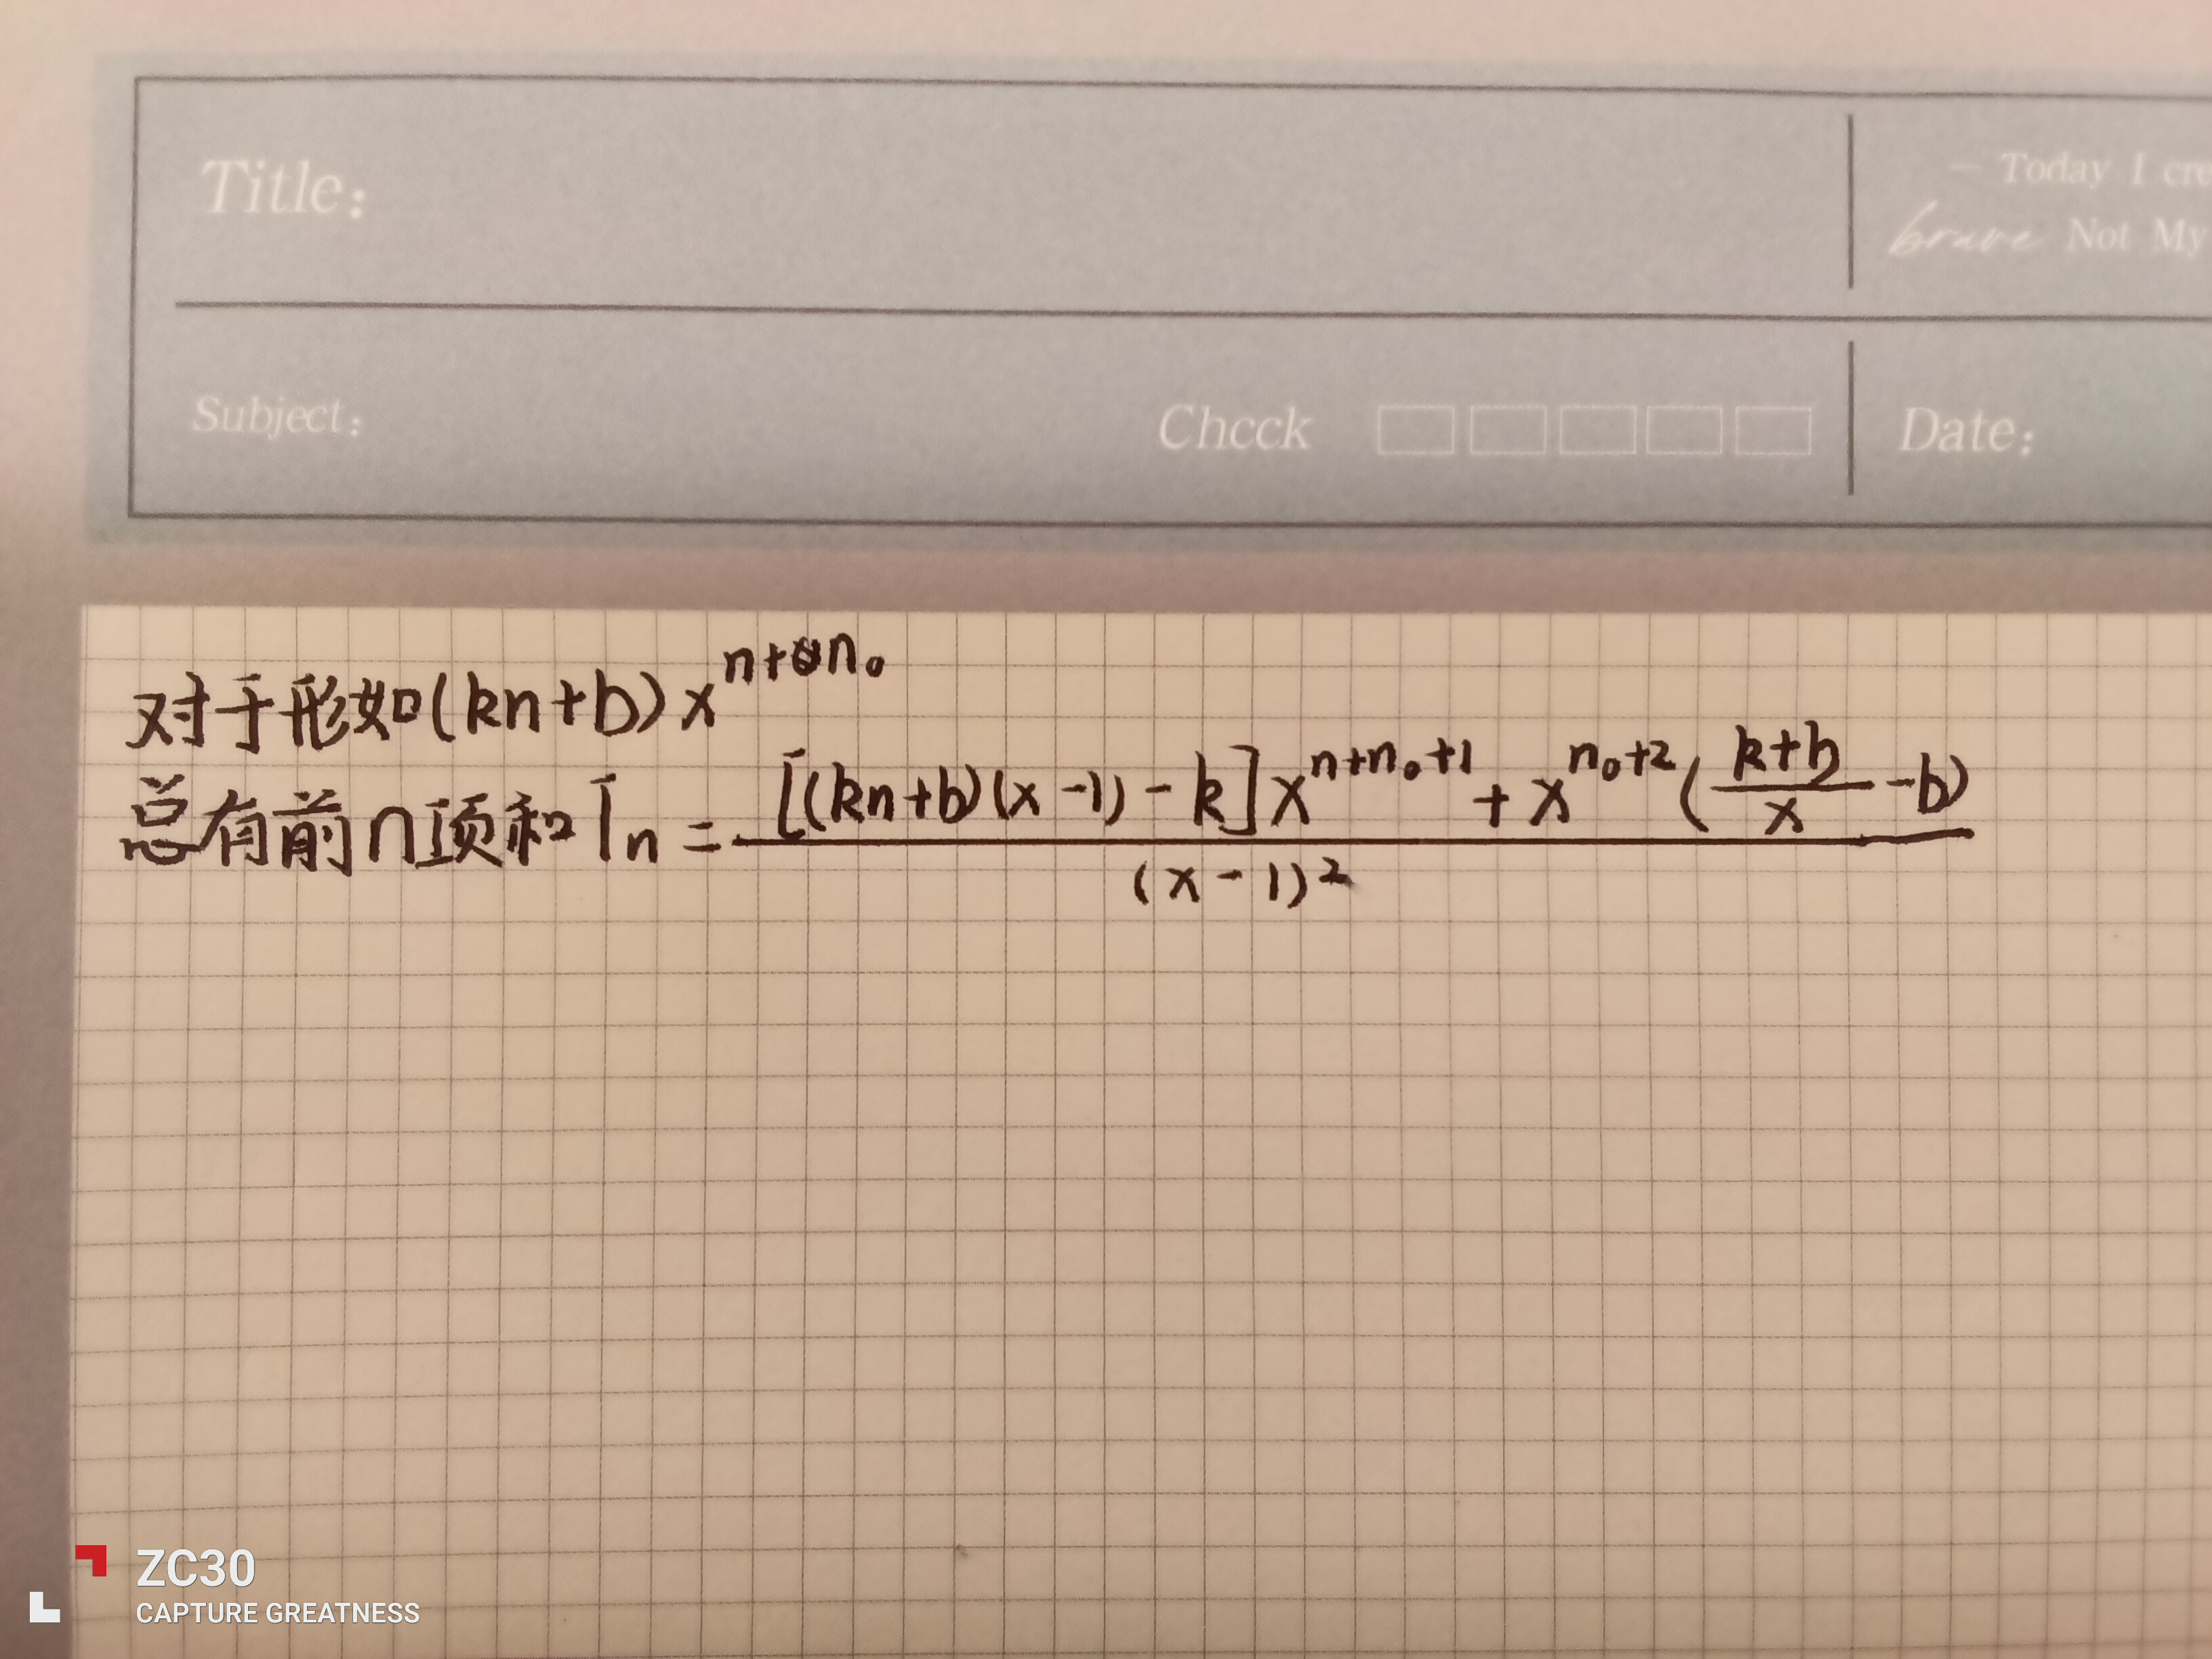 Title:
— Today I cre
brave Not My
Subject:
Chcck
Date:
对于形如(kn+b)x^{n+n₀}
总有前n项和Tn = \frac{[(kn+b)(x-1)-k]x^{n+n₀+1}+x^{n₀+2}(\frac{k+b}{x}-b)}{(x-1)²}
ZC30
CAPTURE GREATNESS